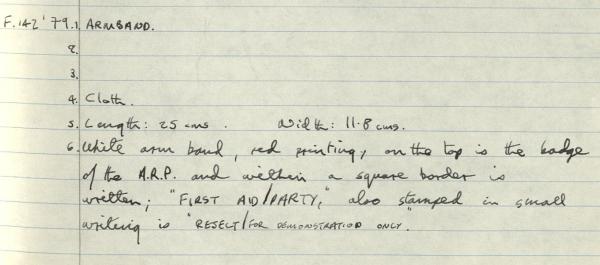 F.142'79.1. ARMBAND.
2.
3.
4. Cloth.
5. Length: 25 cms. Width: 11.8 cms.
6. White arm band, red printing, on the top is the badge
of the A.R.P. and within a square border is
written; "FIRST AID/PARTY," also stamped in small
writing is "RESECT/FOR DEMONSTRATION ONLY".